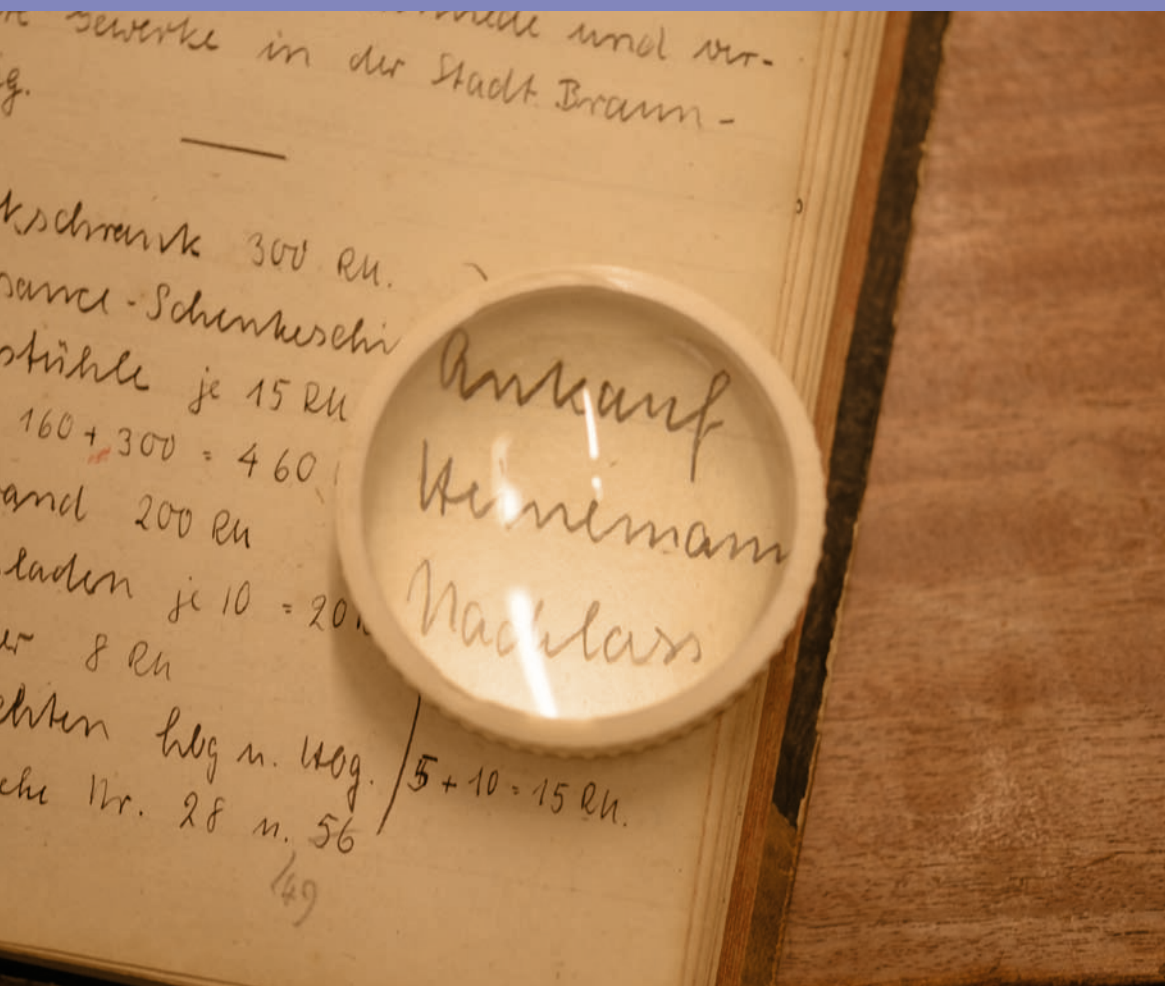 und ver-
Gewerke in der Stadt Braun-
g.
kschrank 300 RM.
sance-Schenkeschi
stühle je 15 RM
160 + 300 = 460
and 200 RM
laden je 10 = 20
er 8 RM
chten hbg u. Hbg. 5 + 10 = 15 RM.
che Nr. 28 u. 56
149
Ankauf
Heinemann
Nachlass